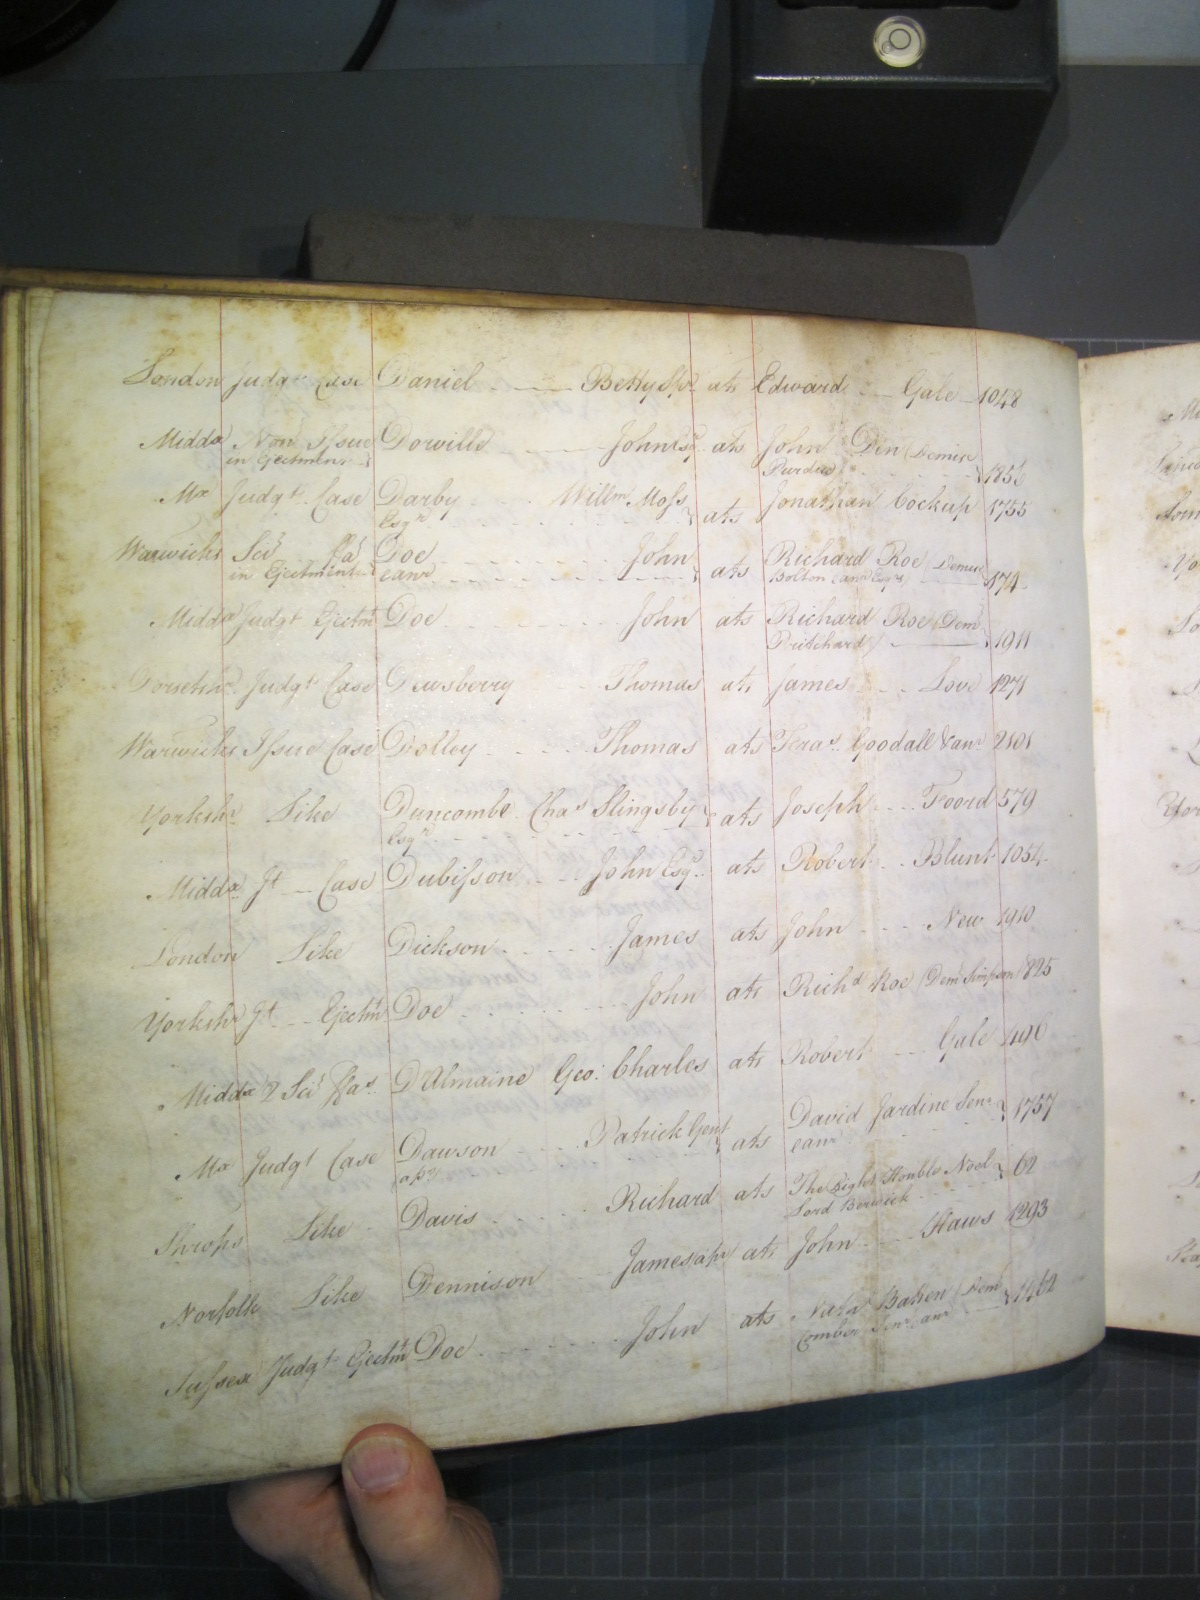 London Judgt Case Daniel Betty Spr ats Edward Gale 1048
Middx Non Issue Dowille John Esqr ats John Den (Demise
in Ejectment Purdue 1856
Mx Judgt Case Darby Willm Moss ats Jonathan Cockup 1755
Esqr
Warwicks Sci Fa Doe John ats Richard Roe (Demise
in Ejectment eanr Bolton eanr Esqrs 174
Middx Judgt Ejectmt Doe John ats Richard Roe (Dem
Pritchard) 1911
Dorsetshr Judgt Case Dewsberry Thomas ats James Love 1271
Warwicks Issue Case Dolley Thomas ats Goodall & anr 2101
Yorkshr Like Duncombe Chas Slingsby ats Joseph Foord 579
Esqr
Middx Jt Case Dubisson John Esqr ats Robert Blunt 1054
London Like Dickson James ats John New 1910
Yorkshr Jt Ejectmt Doe John ats Richd Roe (Dem Simpson) 825
Middx 2 Sci Fas D'Almaine Geo: Charles ats Robert Gale
Mx Judgt Case Dawson Patrick Gent ats David Jardine Senr 1757
eanr
Shrops Like Davis Richard ats The Right Honble Noel 62
Lord Berwick
Norfolk Like Dennison James ats John Haws 1293
Sussex Judgt Ejectmt Doe John ats (Dem 1462
Comber Senr anr